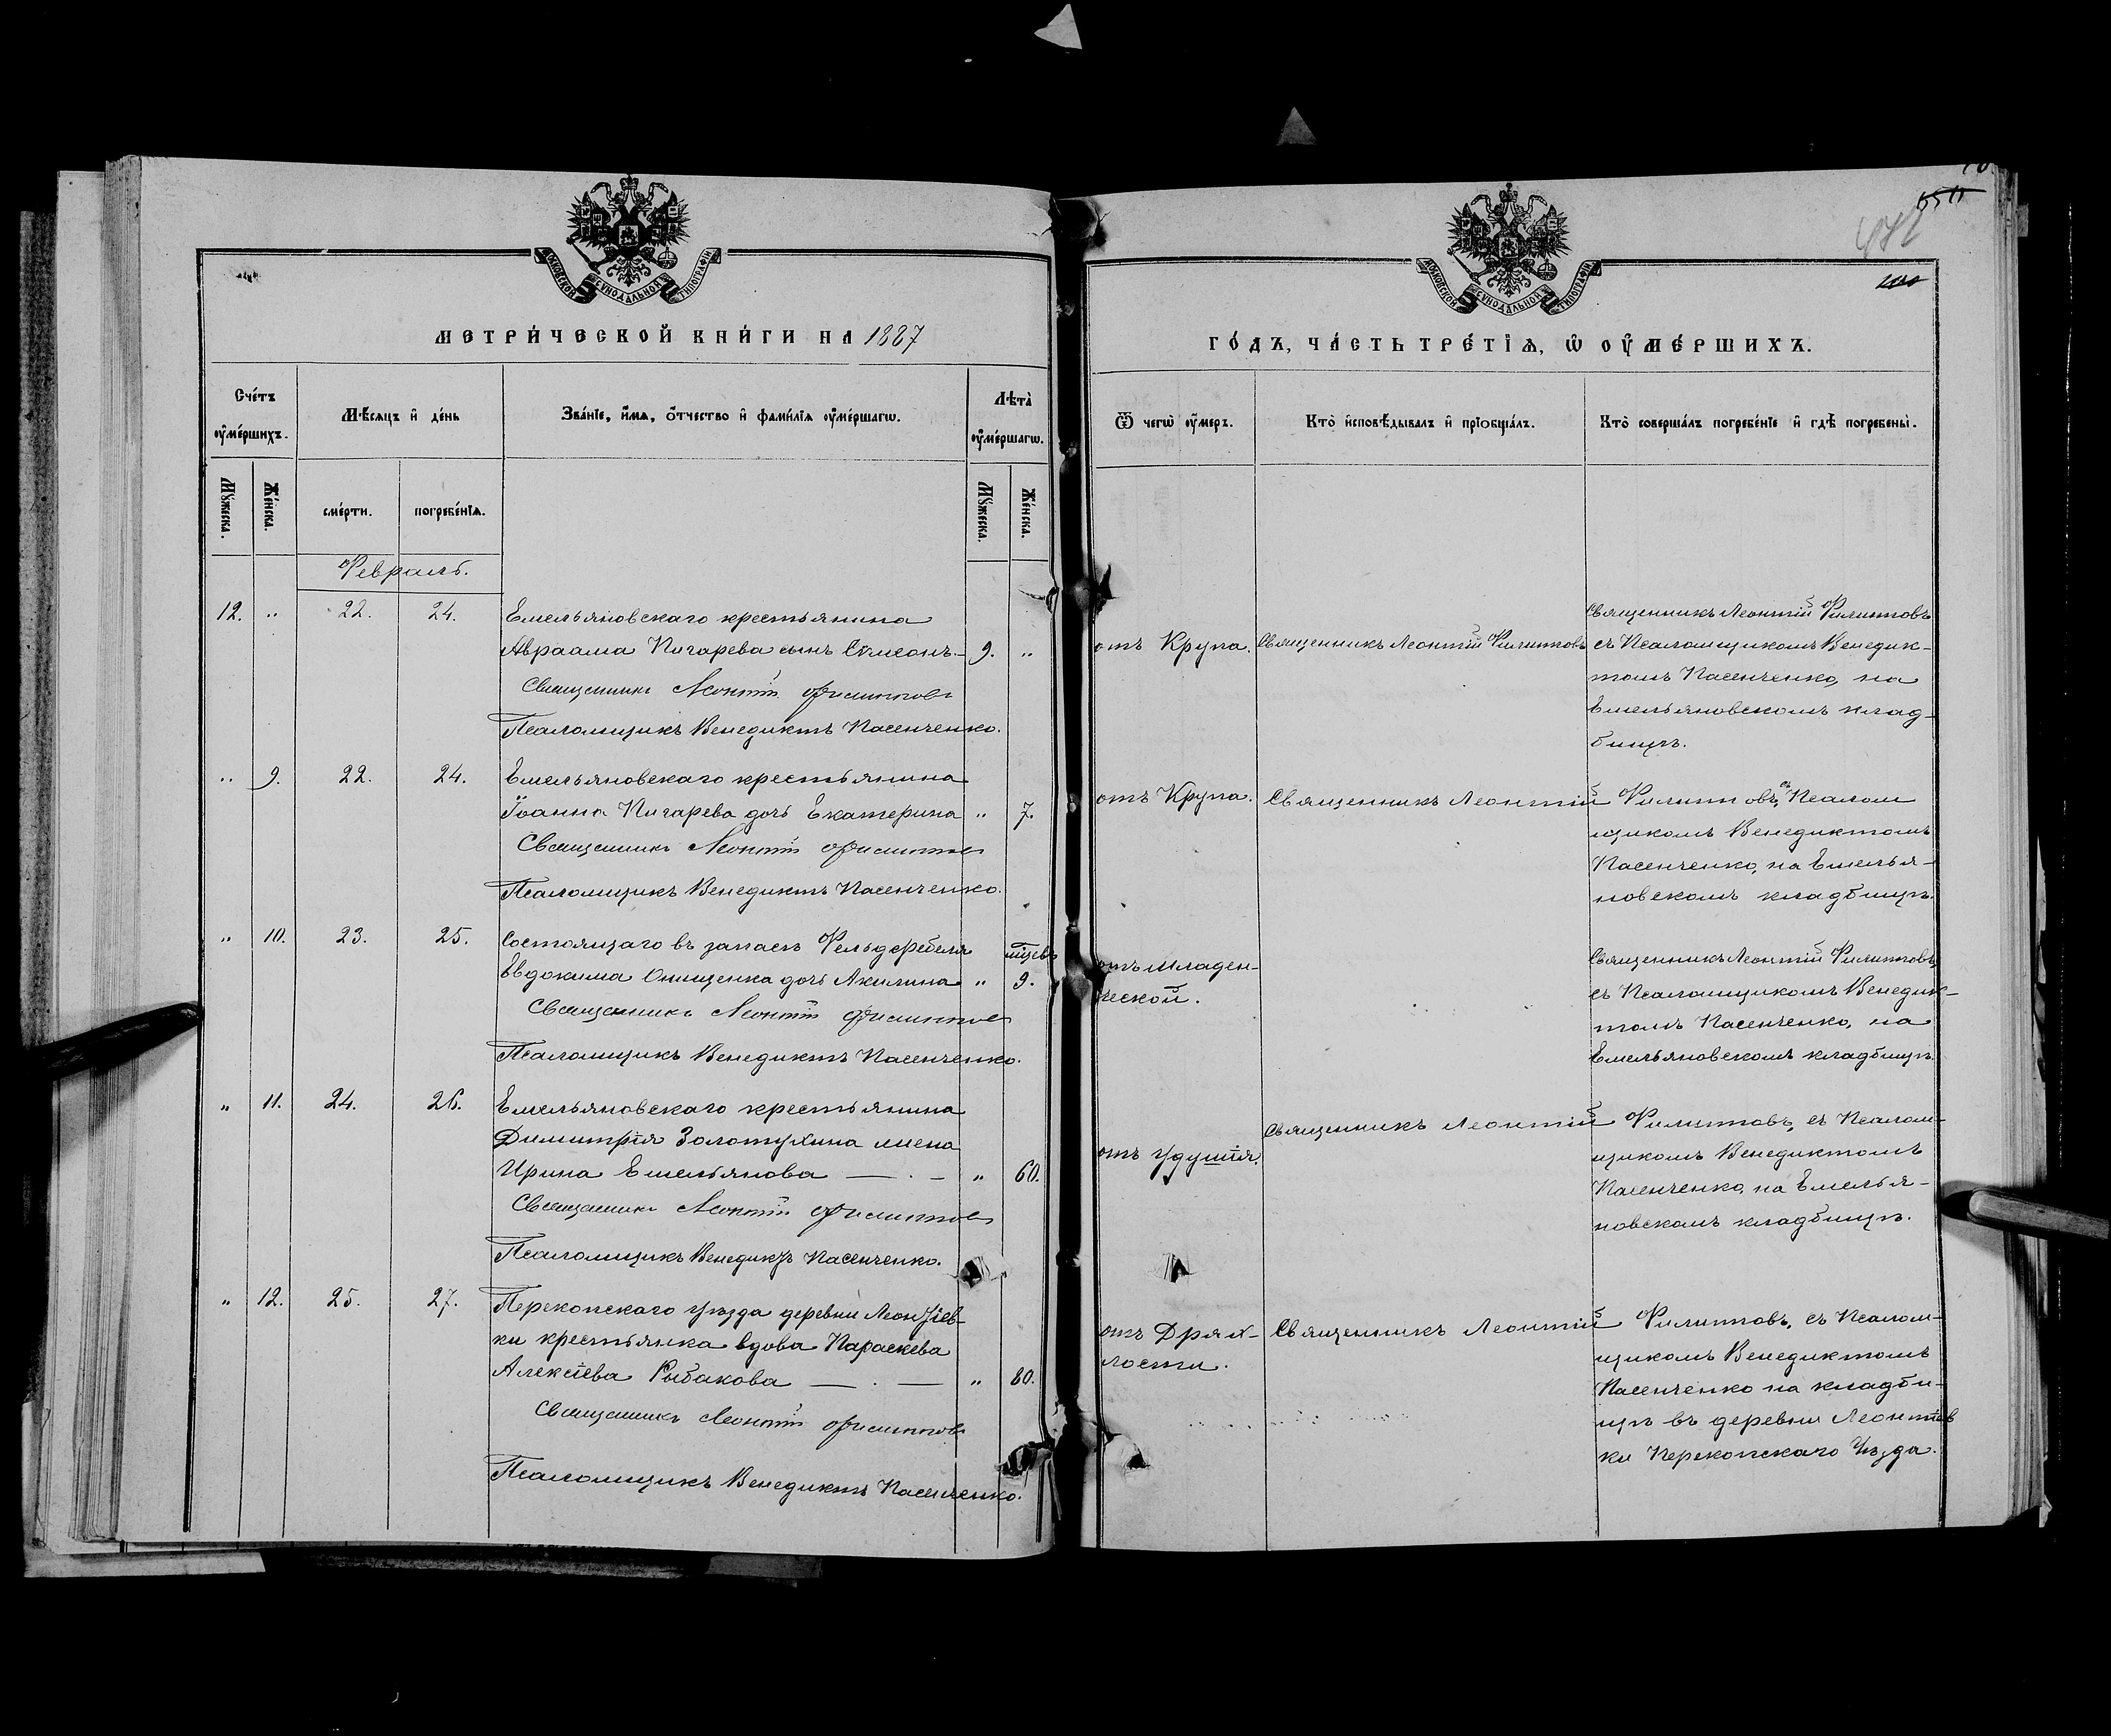 МОСКОВСКОЙ СѴНОДАЛЬНОЙ ТИПОГРАФІИ
МЕТРИ́ЧЕСКОЙ КНИ́ГИ НА 1887
Сче́тъ ᲂу҆ме́ршихъ.
Мѣ́сяцъ и҆ де́нь
Зва́нїе, и҆́мѧ, ѻ҆́тчество и҆ фами́лїѧ ᲂу҆ме́ршагѡ.
Лѣта̀ ᲂу҆ме́ршагѡ.
Мꙋ́жеска.
Же́нска.
сме́рти.
погребе́нїѧ.
Мꙋ́жеска.
Же́нска.
Февраль.
12. " 22. 24. Емельяновскаго крестьянина
Авраама Пигарева сынъ Сѵмеонъ. 9. "
Священникъ Леонтій Филипповъ
Псаломщикъ Венедиктъ Пасенченко.
" 9. 22. 24. Емельяновскаго крестьянина
Іоанна Пигарева дочь Екатерина " 7.
Священникъ Леонтій Филиппов
Псаломщикъ Венедиктъ Пасенченко.
" 10. 23. 25. Состоящаго въ запасѣ Фельдфебеля мѣсцевъ
Евдокима Онищенка дочь Акилина " 9.
Священникъ Леонтій Филиппов
Псаломщикъ Венедиктъ Пасенченко.
" 11. 24. 26. Емельяновскаго крестьянина
Димитрія Золотухина жена
Ирина Емельянова — . — " 60.
Священникъ Леонтій Филиппов
Псаломщикъ Венедиктъ Пасенченко.
" 12. 25. 27. Перекопскаго уѣзда деревни Леонтіев-
ки крестьянка вдова Параскева
Алексіева Рыбакова — . — " 80.
Священникъ Леонтій Филипповъ
Псаломщикъ Венедиктъ Пасенченко.
МОСКОВСКОЙ СѴНОДАЛЬНОЙ ТИПОГРАФІИ
ГО́ДЪ, ЧА́СТЬ ТРЕ́ТІѦ, Ѡ҆ ОУ҆МЕ́РШИХЪ.
Ѿ чегѡ̀ ᲂу҆́меръ.
Кто̀ и҆сповѣ́дывалъ и҆ прїѻбща́лъ.
Кто̀ соверша́лъ погребе́нїе и҆ гдѣ̀ погребены̀.
Священникъ Леонтій Филипповъ
отъ Крупа. Священникъ Леонтій Филипповъ съ Псаломщикомъ Венедик-
томъ Пасенченко, на
Емельяновскомъ клад-
бищѣ.
отъ Крупа. Священникъ Леонтій Филипповъ, съ Псалом
щикомъ Венедиктомъ
Пасенченко, на Емелья-
новскомъ кладбищѣ.
Священникъ Леонтій Филипповъ,
отъ младен- съ Псаломщикомъ Венедик-
ческой. томъ Пасенченко, на
Емельяновскомъ кладбищѣ.
Священникъ Леонтій Филипповъ, съ Псалом-
отъ удушія. щикомъ Венедиктомъ
Пасенченко, на Емелья-
новскомъ кладбищѣ.
отъ Дрях- Священникъ Леонтій Филипповъ, съ Псалом-
лости. щикомъ Венедиктомъ
Пасенченко на кладби-
щѣ въ деревни Леонтіев
ки Перекопскаго Уѣзда.